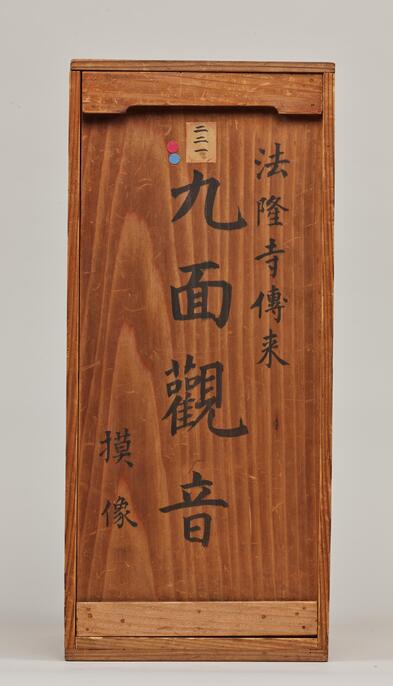 法隆寺傳来
二二一
九面觀音
摸像